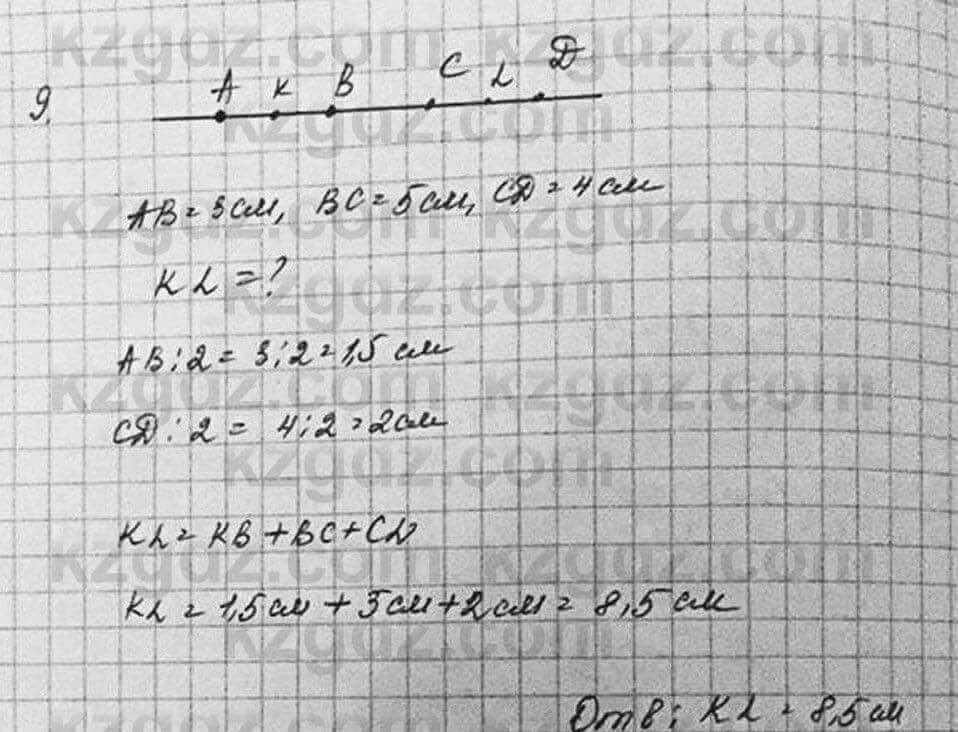 kzgdz.com kzgdz.com
A K B C L D
9.
kzgdz.com
AB = 3 см, BC = 5 см, CD = 4 см
kzgdz.com kzgdz.com
KL = ?
kzgdz.com
AB : 2 = 3 : 2 = 1,5 см
kzgdz.com kzgdz.com
CD : 2 = 4 : 2 = 2 см
kzgdz.com
KL = KB + BC + CL
kzgdz.com kzgdz.com
KL = 1,5 см + 5 см + 2 см = 8,5 см
kzgdz.com
Отв: KL = 8,5 см
kzgdz.com kzgdz.com